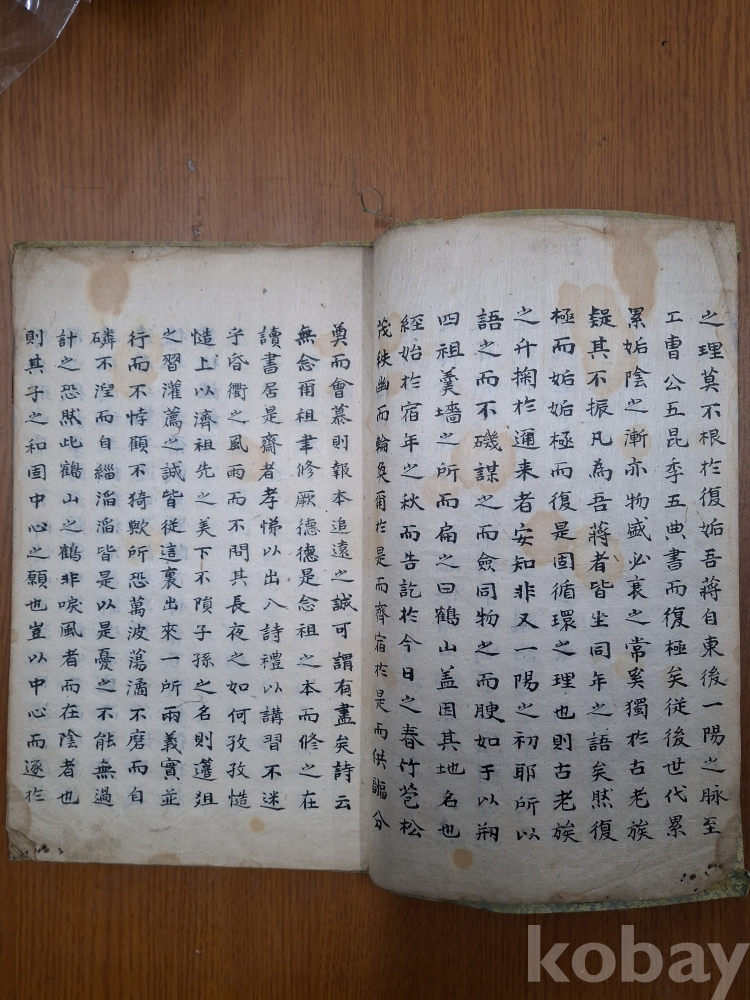 之理莫不根於復姤吾蔣自東後一陽之脉至
工曺公五昆季五典書而復極矣從後世代累
累姤陰之漸亦物盛必衰之常奚獨於古老族
疑其不振凡為吾蔣者皆坐同年之語矣然復
極而姤姤極而復是固循環之理也則古老族
之升掬於邇来者安知非又一陽之初耶所以
語之而不磯謀之而僉同物之而腴如于以刱
四祖羹墻之所而扁之曰鶴山盖因其地名也
經始於宿年之秋而告訖於今日之春竹苞松
茂秩幽而輪奐爾於是而齊宿於是而供 分
奠而會慕則報本追遠之誠可謂有盡矣詩云
無念爾祖聿修厥德德是念祖之本而修之在
讀書居是齋者孝悌以出入詩禮以講習不迷
乎昏衢之風雨而不問其長夜之如何孜孜慥
慥上以濟祖先之美下不隕子孫之名則籩俎
之習灌薦之誠皆従這裏出來一所兩義實並
行而不悖顧不猗歟所恐萬波蕩潏不磨而自
磷不湼而自緇滔滔皆是以是憂之不能無過
計之恐然此鶴山之鶴非唳風者而在陰者也
則其子之和固中心之願也豈以中心而逐於
kobay